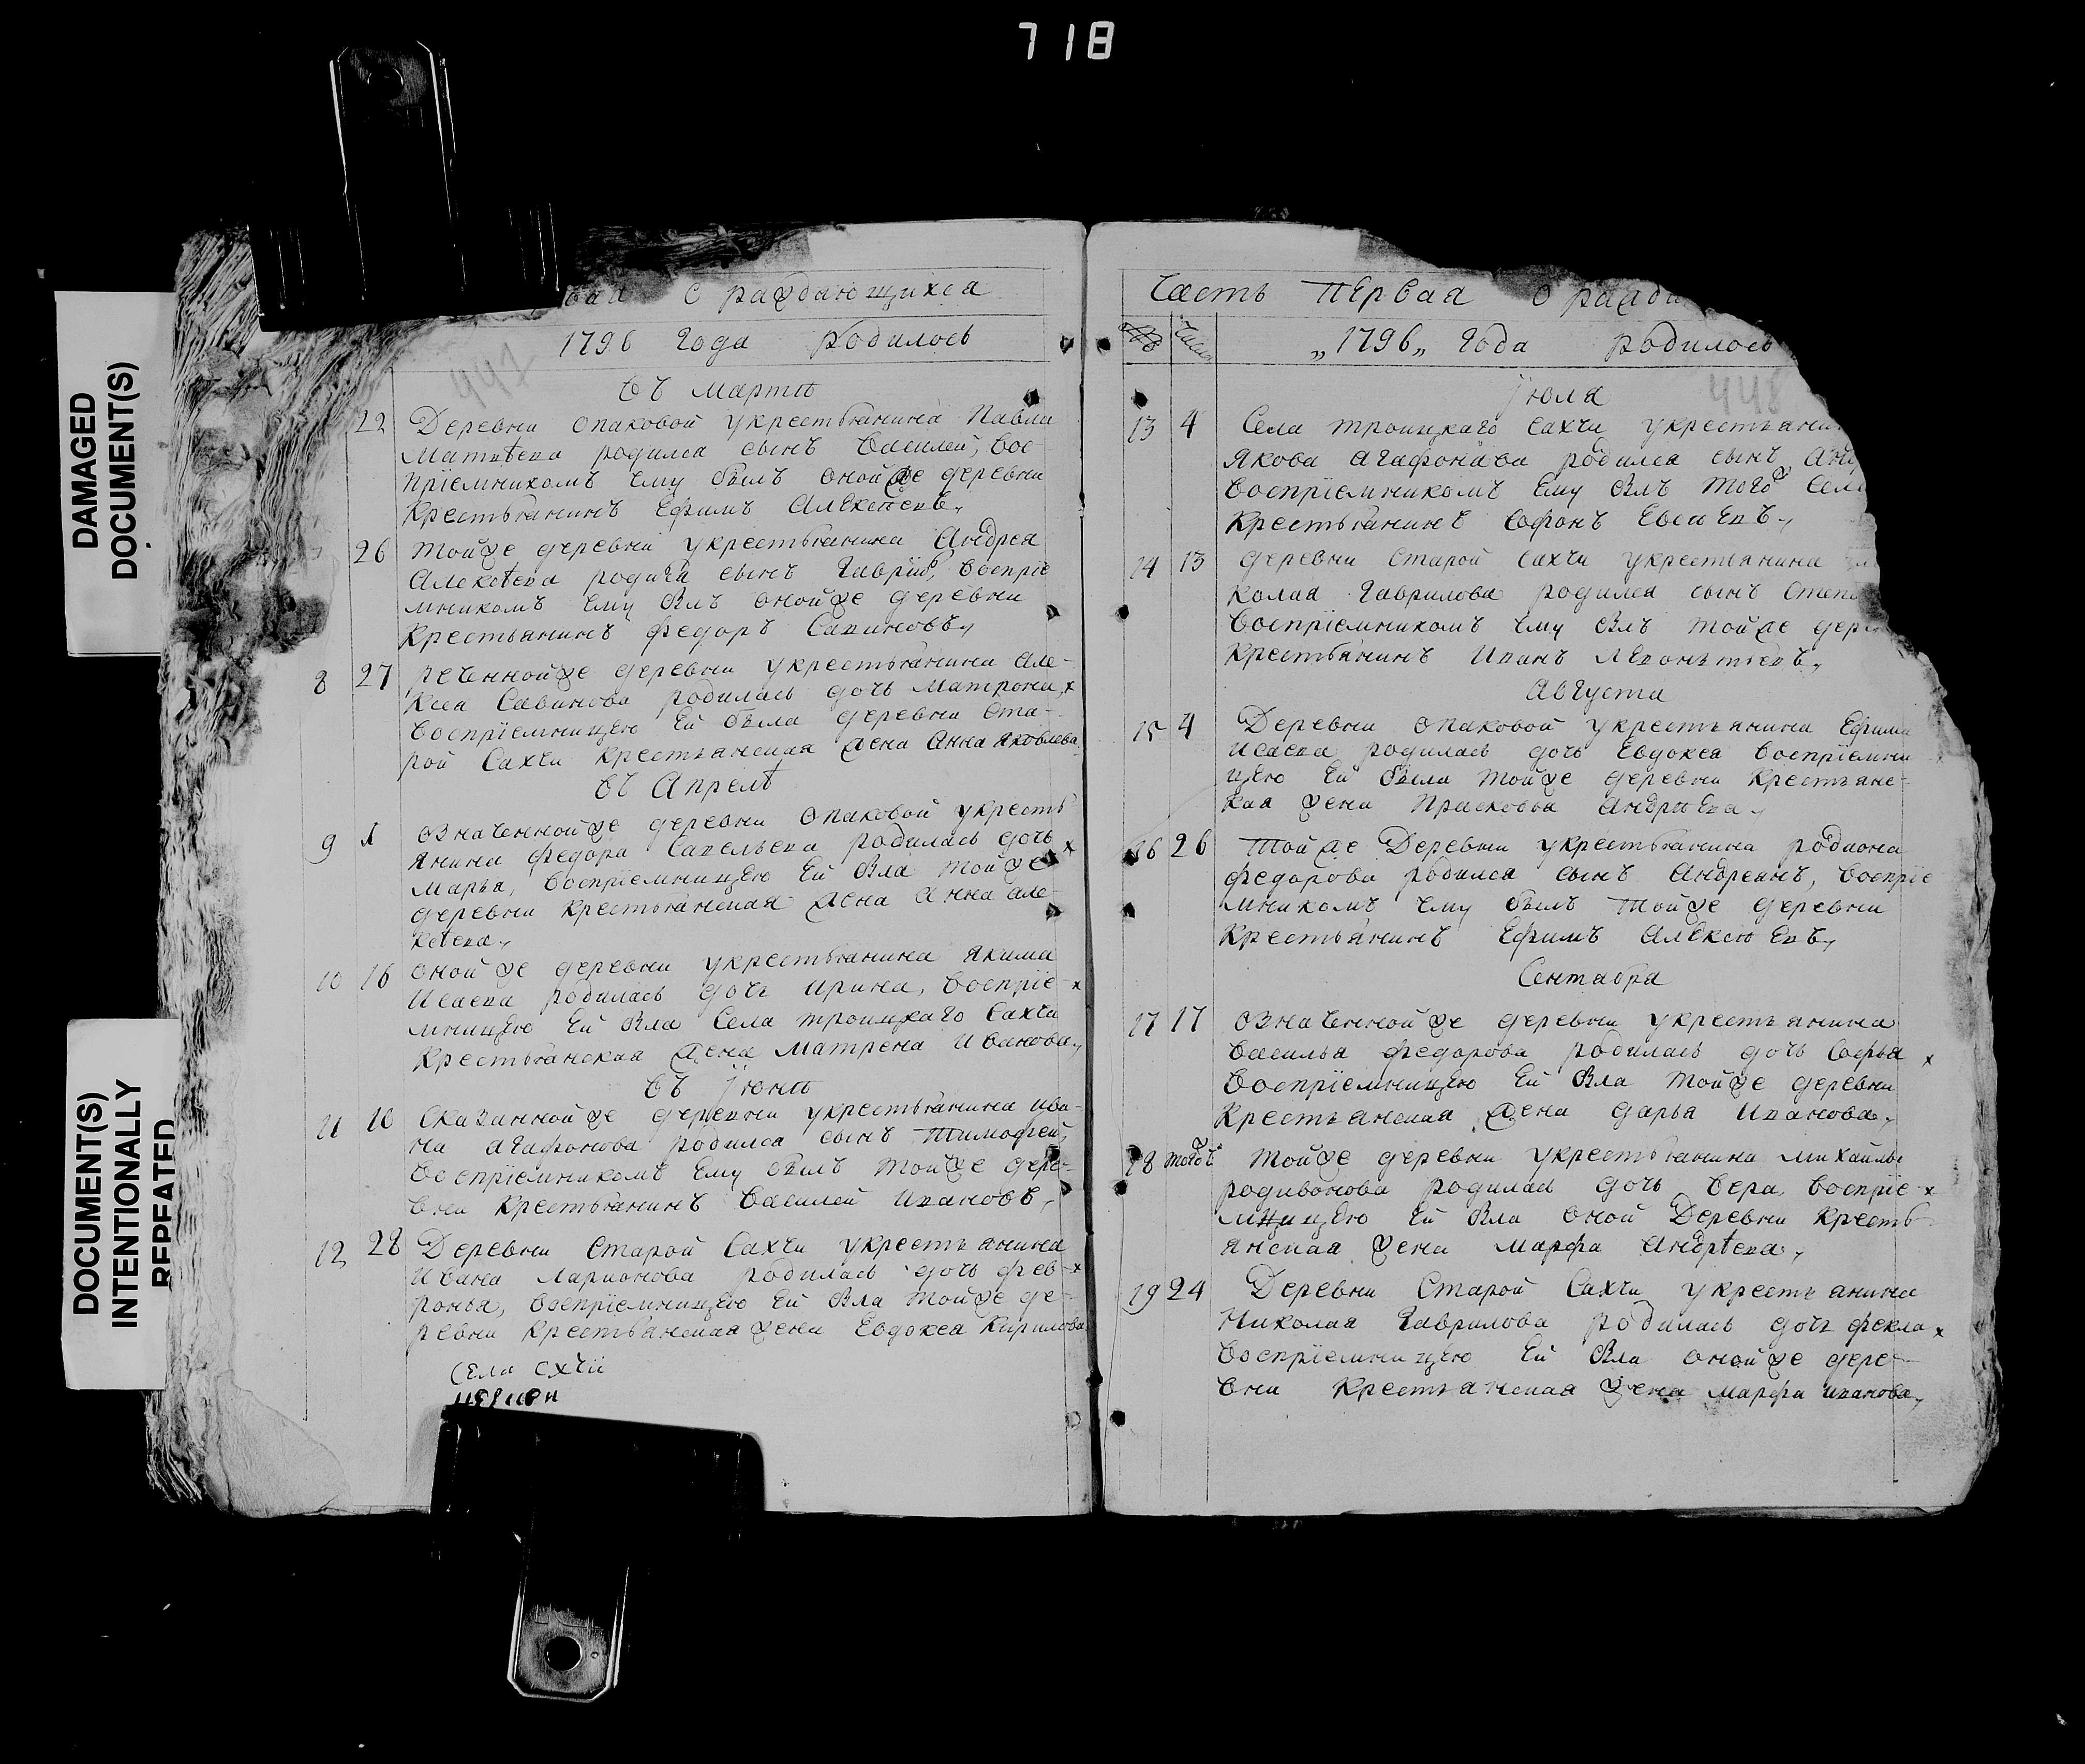 718
DAMAGED
DOCUMENT(S)
DOCUMENT(S)
INTENTIONALLY
REPEATED
вая О раждающихся
1796 Года Родилось
447
въ мартѣ
22 Деревни опаковой укрестьянина Павла
Матвѣева родился сынъ Василей, вос
пріемникомъ ему былъ оной же деревни
крестьянинъ Ефимъ Алексѣевъ,
26 тойже деревни укрестьянина Андрея
Алексѣева родился сынъ Гаврило, воспріе
мникомъ ему былъ онойже деревни
крестьянинъ федоръ Савиновъ,
8 27 реченнойже деревни укрестьянина Але-
ксея Савинова родилась дочь Матрона, x
воспріемницею ей была деревни Ста-
рой Сахчи крестьянская жена Анна Яковлева
въ Апрелѣ
9 1 означеннойже деревни опаковой укресть
янина федора Савельева родилась дочь x
Марья, воспріемницею ей была тойже
деревни крестьянская жена Анна але-
ксѣева,
10 16 оной же деревни укрестьянина якима
Исаева родилась дочь Ирина, воспріе- x
мницею ей была Села троицкаго Сахчи
крестьянская жена Матрена Иванова,
въ Їюнѣ
11 10 Сказаннойже деревни укрестьянина ива-
на агафонова родился сынъ Тимофей,
воспріемникомъ ему былъ тойже дере-
вни крестьянинъ Василей Ивановъ,
12 28 Деревни Старой Сахчи укрестьянина
Ивана Ларионова родилась дочь фев- x
ронья, воспріемницею ей была тойже де-
ревни крестьянская жена Евдокея Кирилова
Села схчи
Часть первая О ражда
№ Числа „1796„ Года родилось
448
Їюля
13 4 Села троицкаго сахчи укрестьяни
Якова агафонава родился сынъ Анд
воспріемникомъ ему былъ тогоже Села
крестьянинъ Софонъ Евсеевъ,
14 13 деревни Старой сахчи укрестьянина
колая Гаврилова родился сынъ Степа
воспріемникомъ ему былъ тойже дере
крестьянинъ Иванъ Леонтьевъ,
Августа
15 4 Деревни опаковой укрестьянина Ефима
Исаева родилась дочь Евдокея воспріемни
цею ей была тойже деревни крестьянс-
кая жена Прасковья андрѣева,
16 26 Тойже Деревни укрестьянина родиона
федорова родился сынъ Андреянъ, воспріе
мникомъ ему былъ тойже деревни
крестьянинъ Ефимъ Алексеевъ,
Сентабра
17 17 означеннойже деревни укрестьянина
василья федорова родилась дочь Софья x
воспріемницею ей была тойже деревни
крестьянская жена дарья Иванова,
18 тогожъ Тойже деревни укрестьянина михайлы
родивонова родилась дочь вера, воспріе- x
мницею ей была оной Деревни кресть-
янская жена марфа андрѣева,
19 24 Деревни Старой Сахчи укрестьянина
Николая Гаврилова родилась дочь фекла x
воспріемницею ей была онойже дере-
вни крестьянская жена марфа иванова,